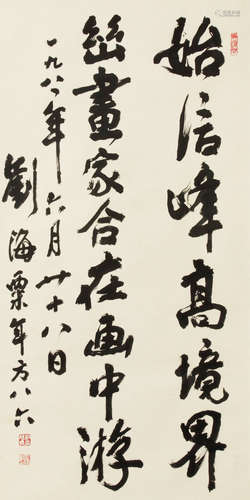 始信峰高境界
幽畫家合在画中游
一九八年六月廿十八日
劉海粟年方八六